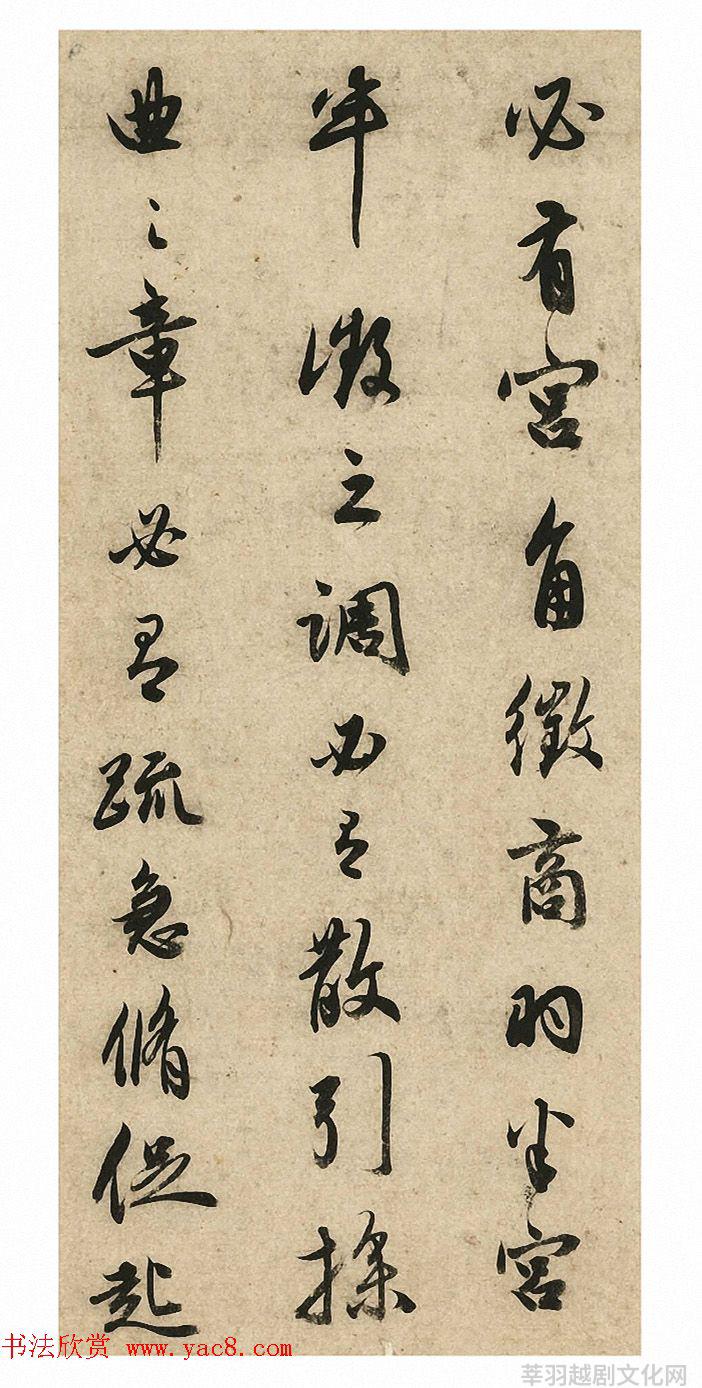 必有宮角徵商羽半宮
半徵之調必有散引操
曲之章必有疏急脩促起
书法欣赏 www.yac8.com
莘羽越剧文化网